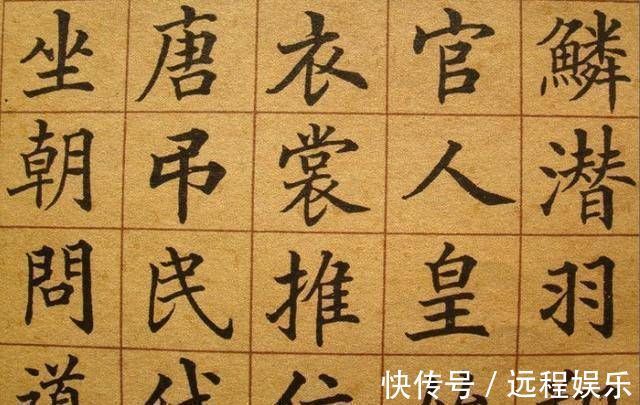 鱗潜羽
官人皇
衣裳推位
唐吊民伐
坐朝問道
快传号/远程娱乐